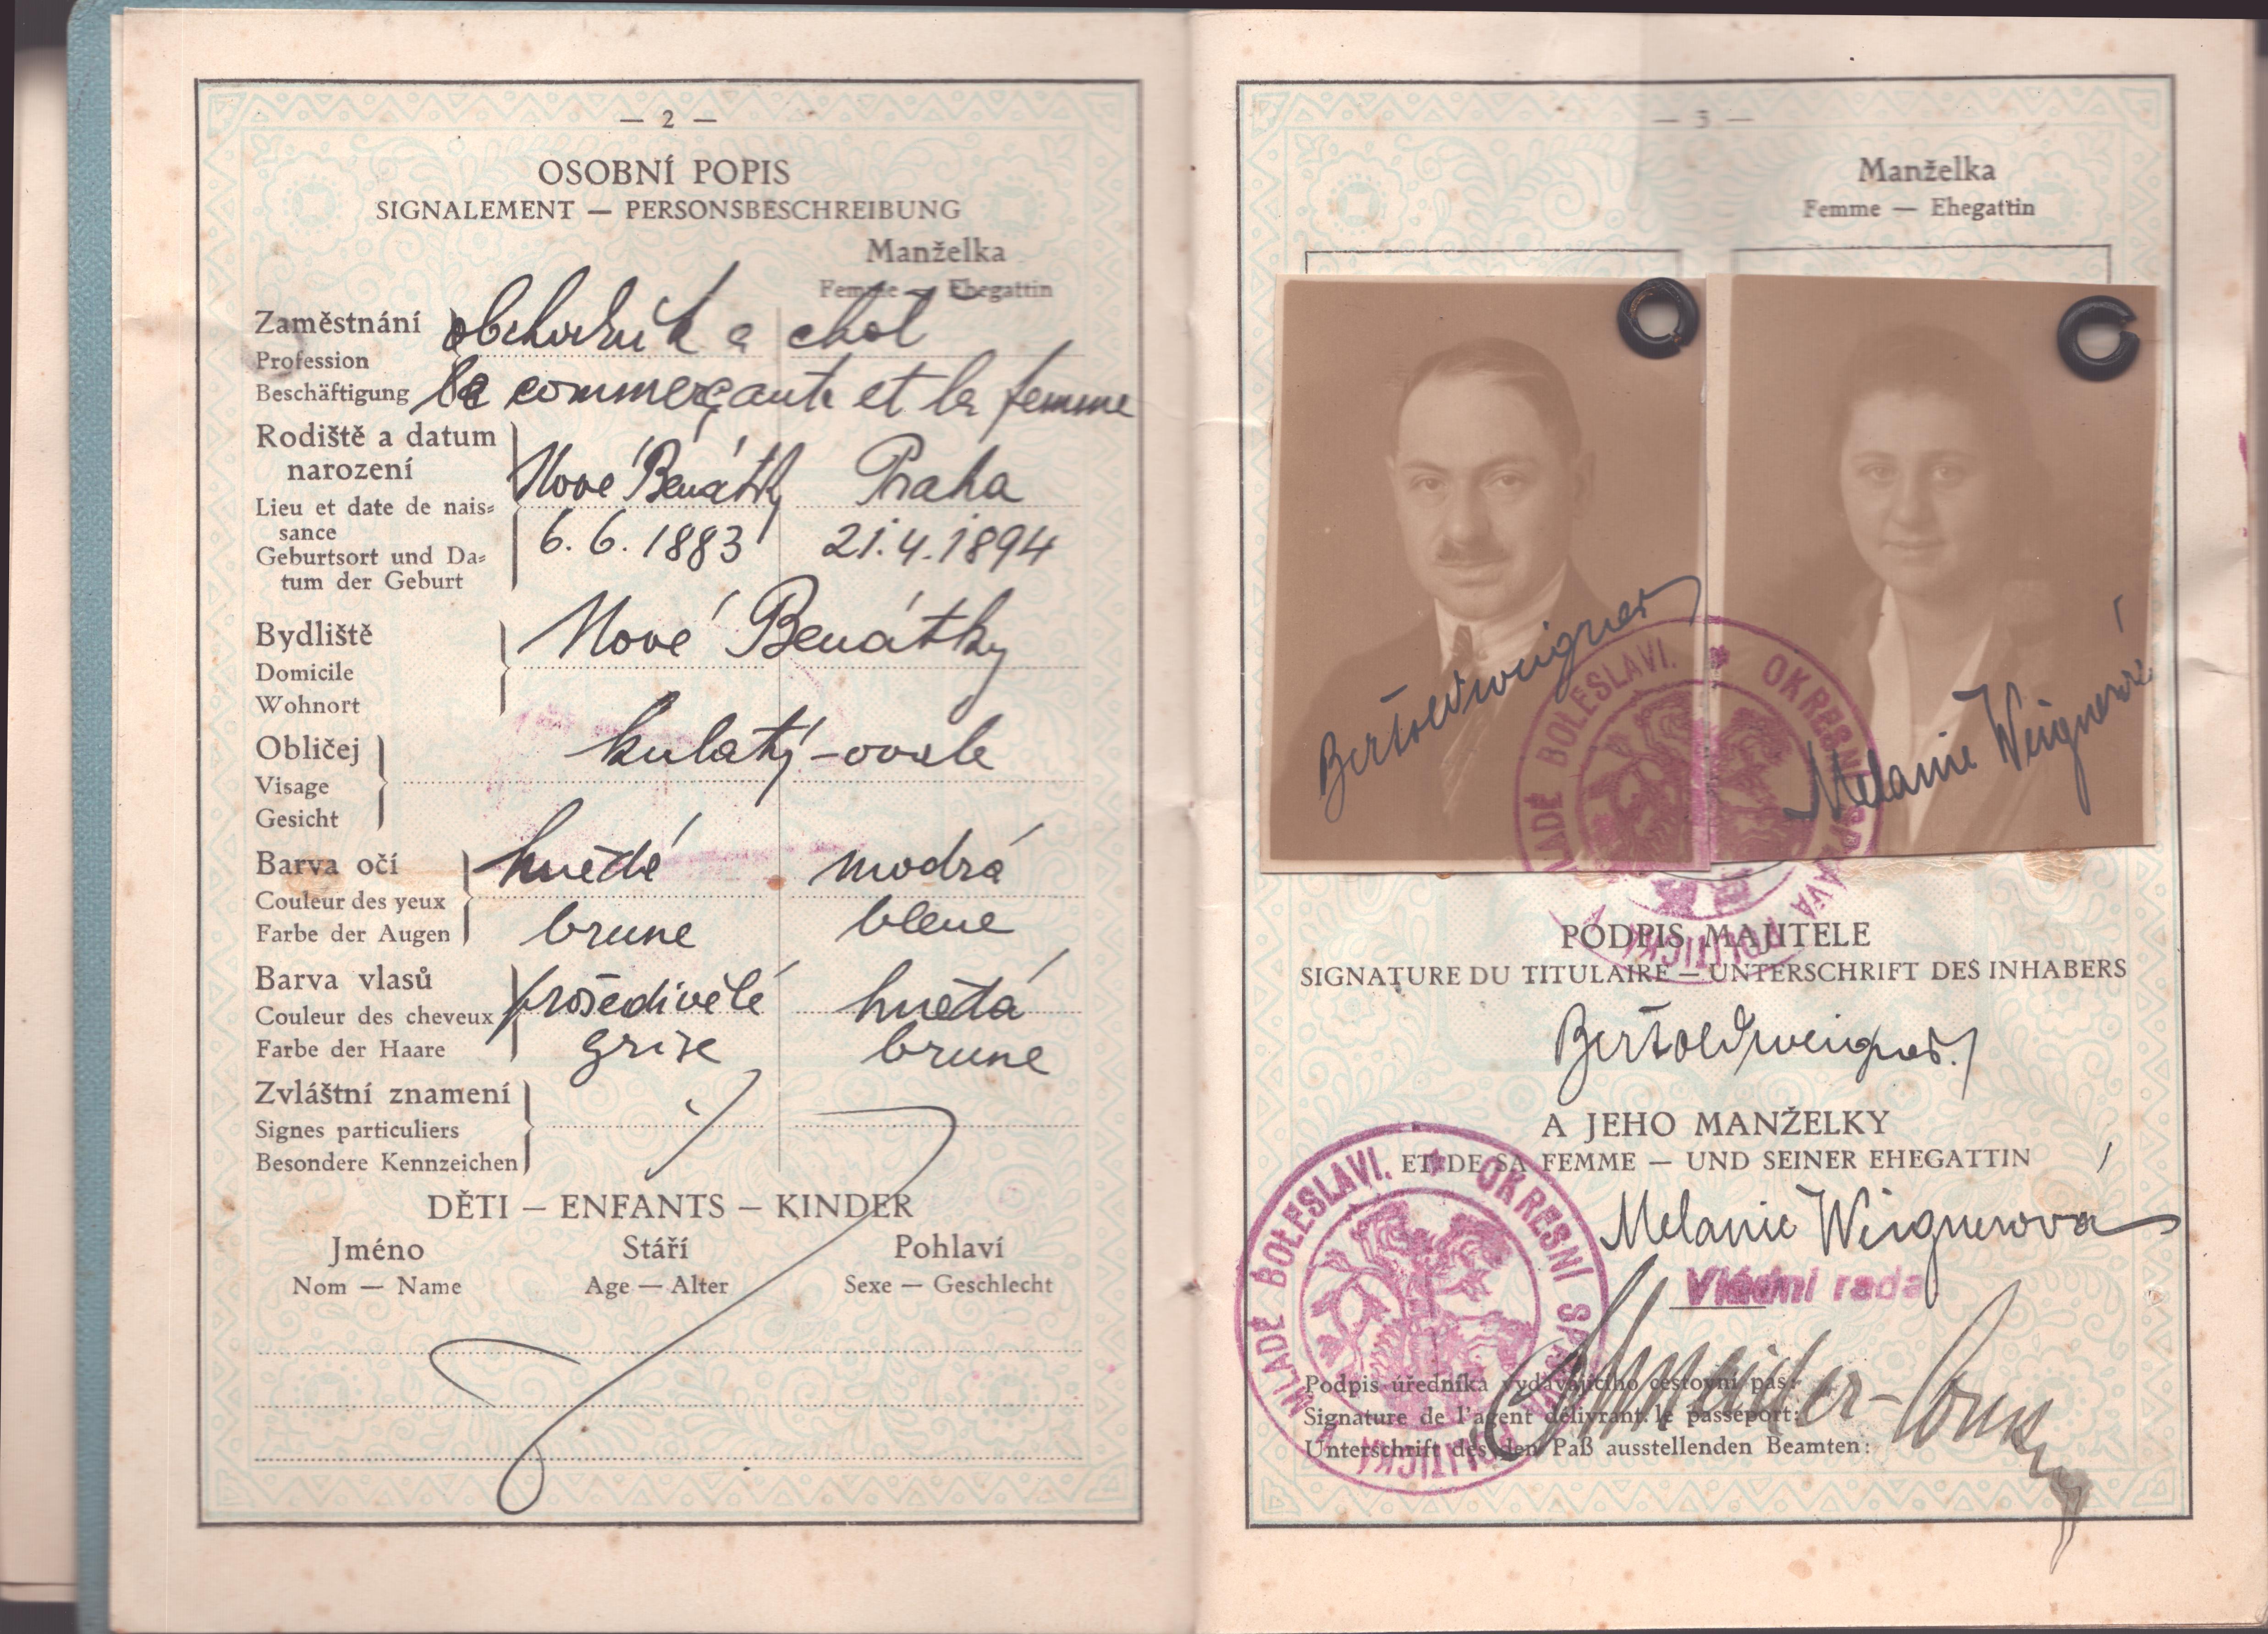 — 2 —
OSOBNÍ POPIS
SIGNALEMENT — PERSONSBESCHREIBUNG
Manželka
Femme — Ehegattin
Zaměstnání obchodník a choť
Profession
Beschäftigung le commerçante et la femme
Rodiště a datum
narození
Nové Benátky Praha
Lieu et date de nais=
sance
6.6.1883 21.4.1894
Geburtsort und Da=
tum der Geburt
Bydliště Nové Benátky
Domicile
Wohnort
Obličej kulatý - ovale
Visage
Gesicht
Barva očí hnědé modrá
Couleur des yeux
Farbe der Augen brune bleue
Barva vlasů
Couleur des cheveux prošedivělé hnědá
Farbe der Haare grise brune
Zvláštní znamení
Signes particuliers
Besondere Kennzeichen
DĚTI — ENFANTS — KINDER
Jméno Stáří Pohlaví
Nom — Name Age — Alter Sexe — Geschlecht
— 3 —
Manželka
Femme — Ehegattin
Bertold Weigner
Melanie Weignerová
OKRESNÍ SPRÁVA POLITICKÁ V MLADÉ BOLESLAVI.
PODPIS MAJITELE
SIGNATURE DU TITULAIRE — UNTERSCHRIFT DES INHABERS
Bertold Weigner.
A JEHO MANŽELKY
ET DE SA FEMME — UND SEINER EHEGATTIN
Melanie Weignerová
Vládní rada
OKRESNÍ SPRÁVA POLITICKÁ V MLADÉ BOLESLAVI.
Podpis úředníka vydávajícího cestovní pas:
Signature de l'agent délivrant le passeport:
Unterschrift des den Paß ausstellenden Beamten: